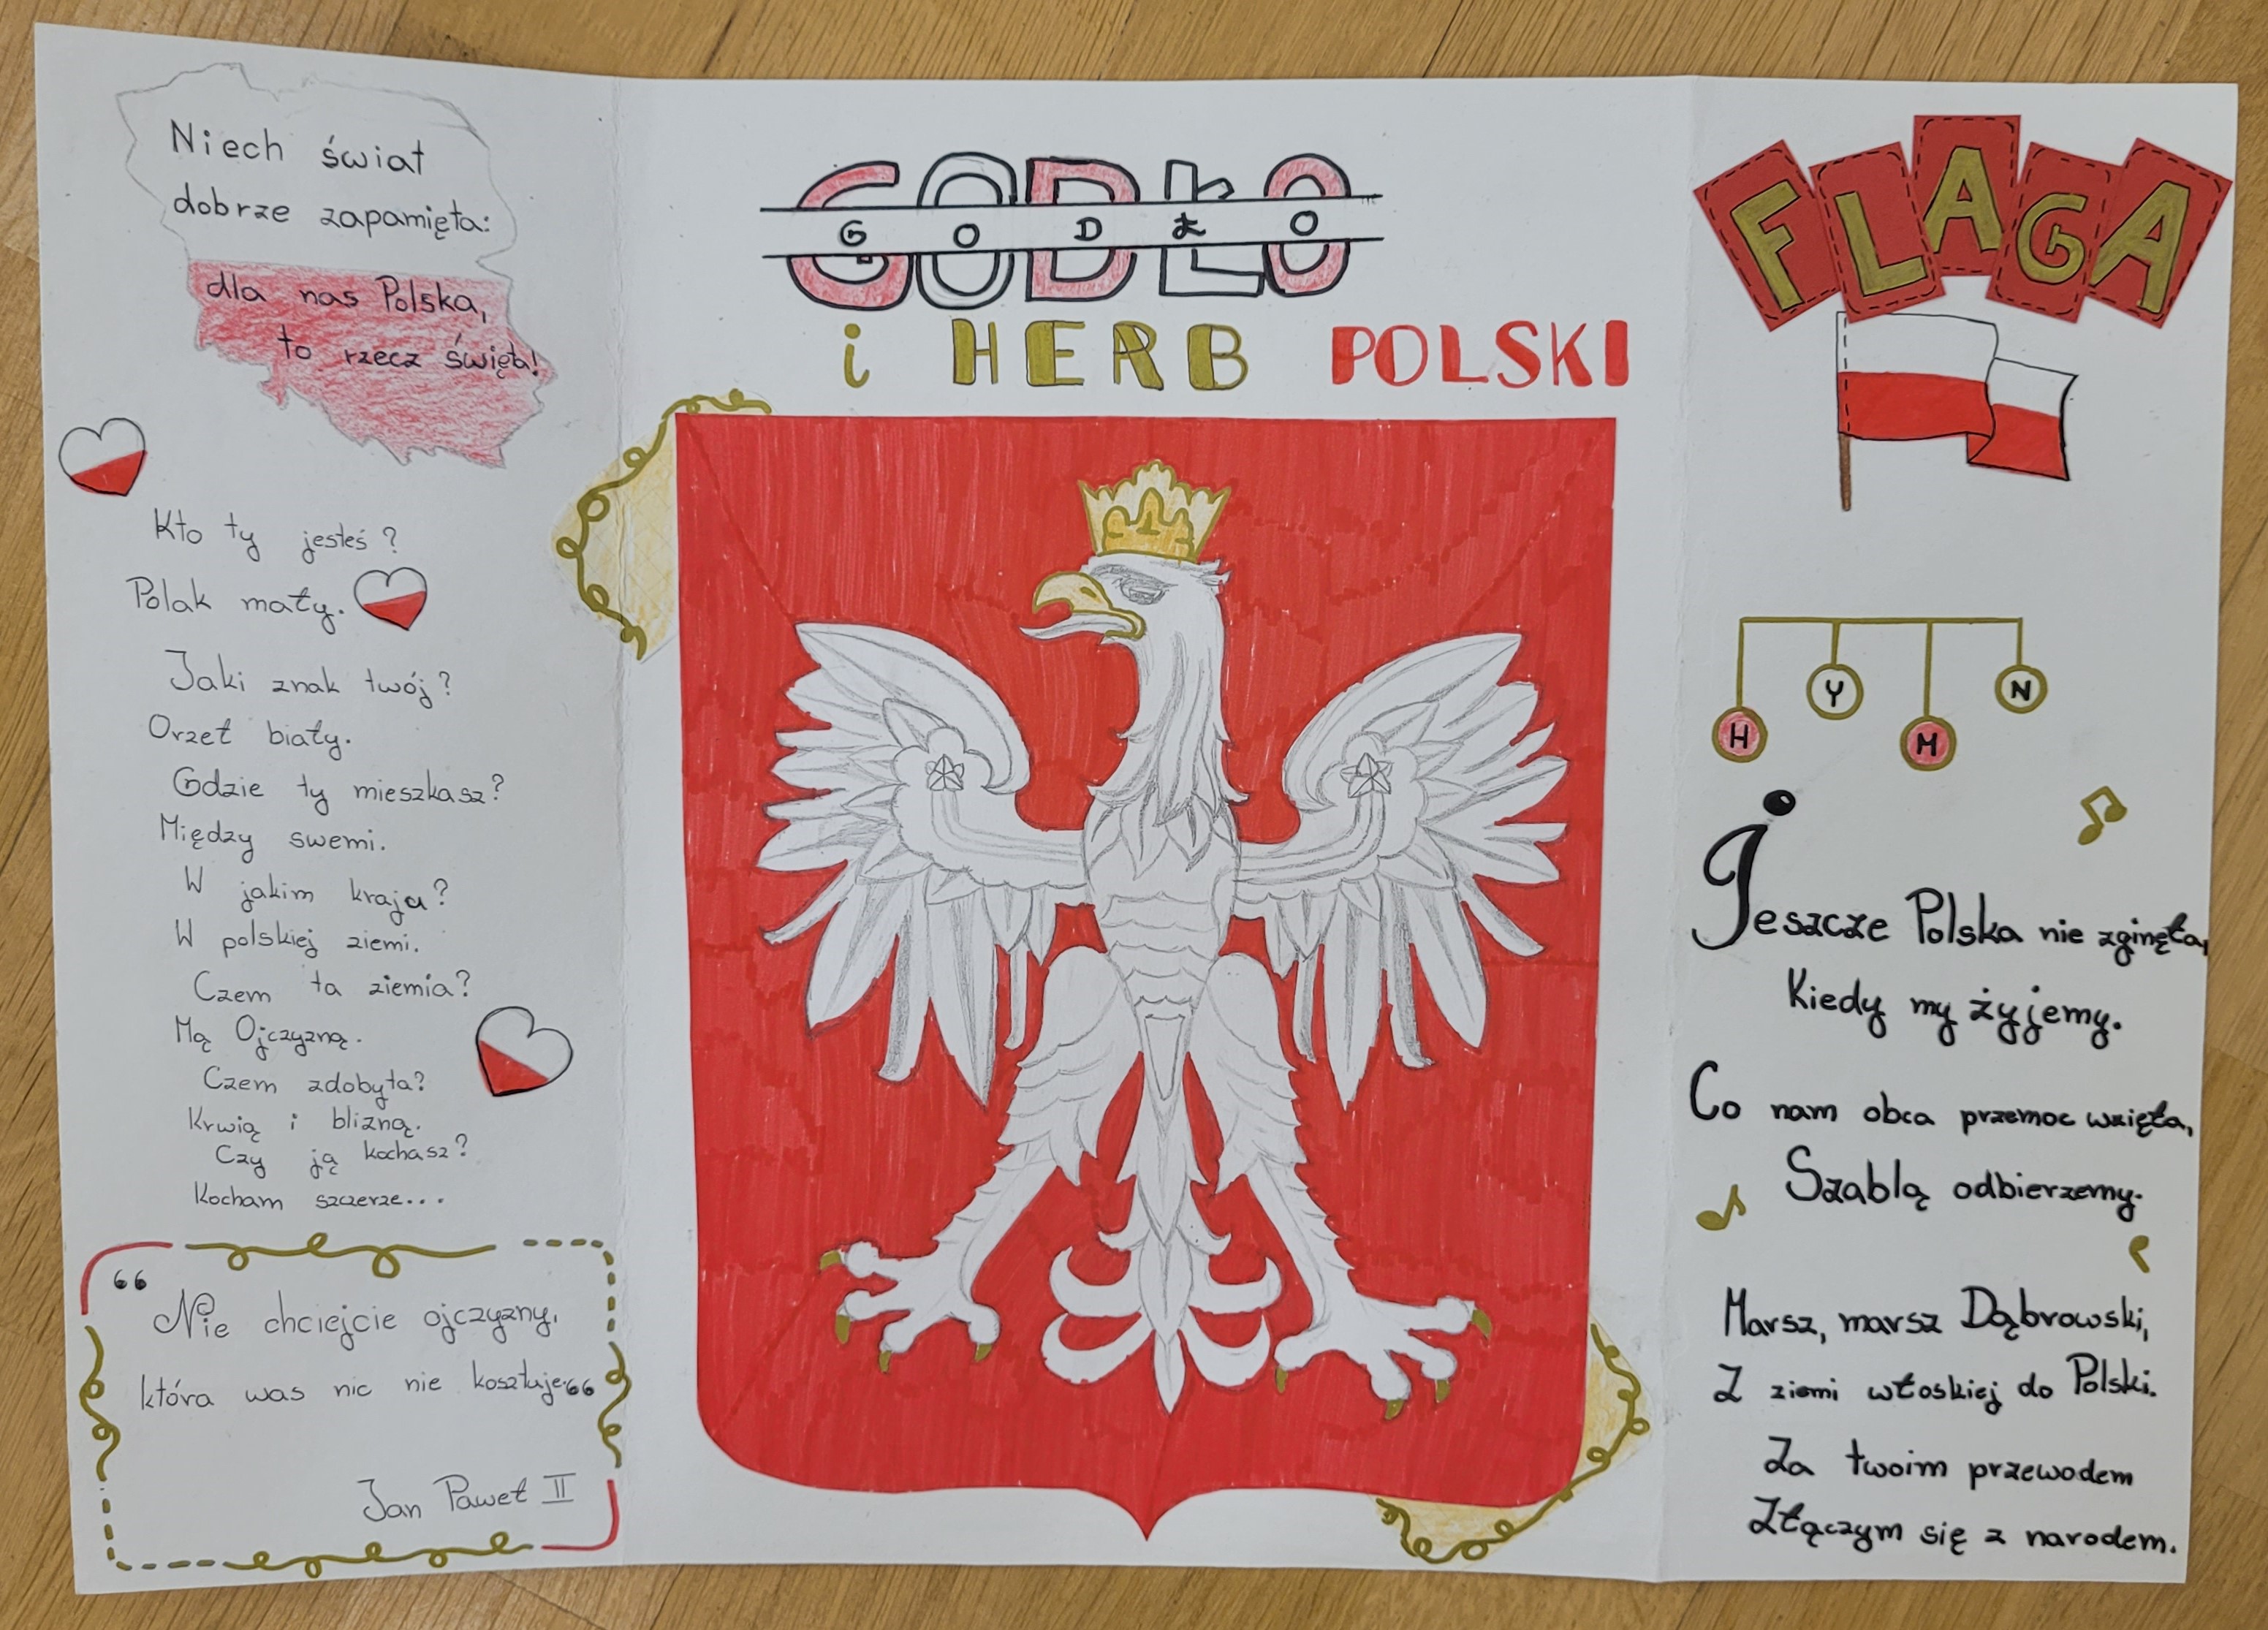 Niech świat
dobrze zapamięta:
dla nas Polska,
to rzecz święta!
Kto ty jesteś?
Polak mały.
Jaki znak twój?
Orzeł biały.
Gdzie ty mieszkasz?
Między swemi.
W jakim kraju?
W polskiej ziemi.
Czem ta ziemia?
Mą Ojczyzną.
Czem zdobyta?
Krwią i blizną.
Czy ją kochasz?
Kocham szczerze...
“ Nie chciejcie ojczyzny,
która was nic nie kosztuje.“
Jan Paweł II
GODŁO
G O D Ł O
i HERB POLSKI
FLAGA
HYMN
Jeszcze Polska nie zginęła,
Kiedy my żyjemy.
Co nam obca przemoc wzięła,
Szablą odbierzemy.
Marsz, marsz Dąbrowski,
Z ziemi włoskiej do Polski.
Za twoim przewodem
Złączym się z narodem.